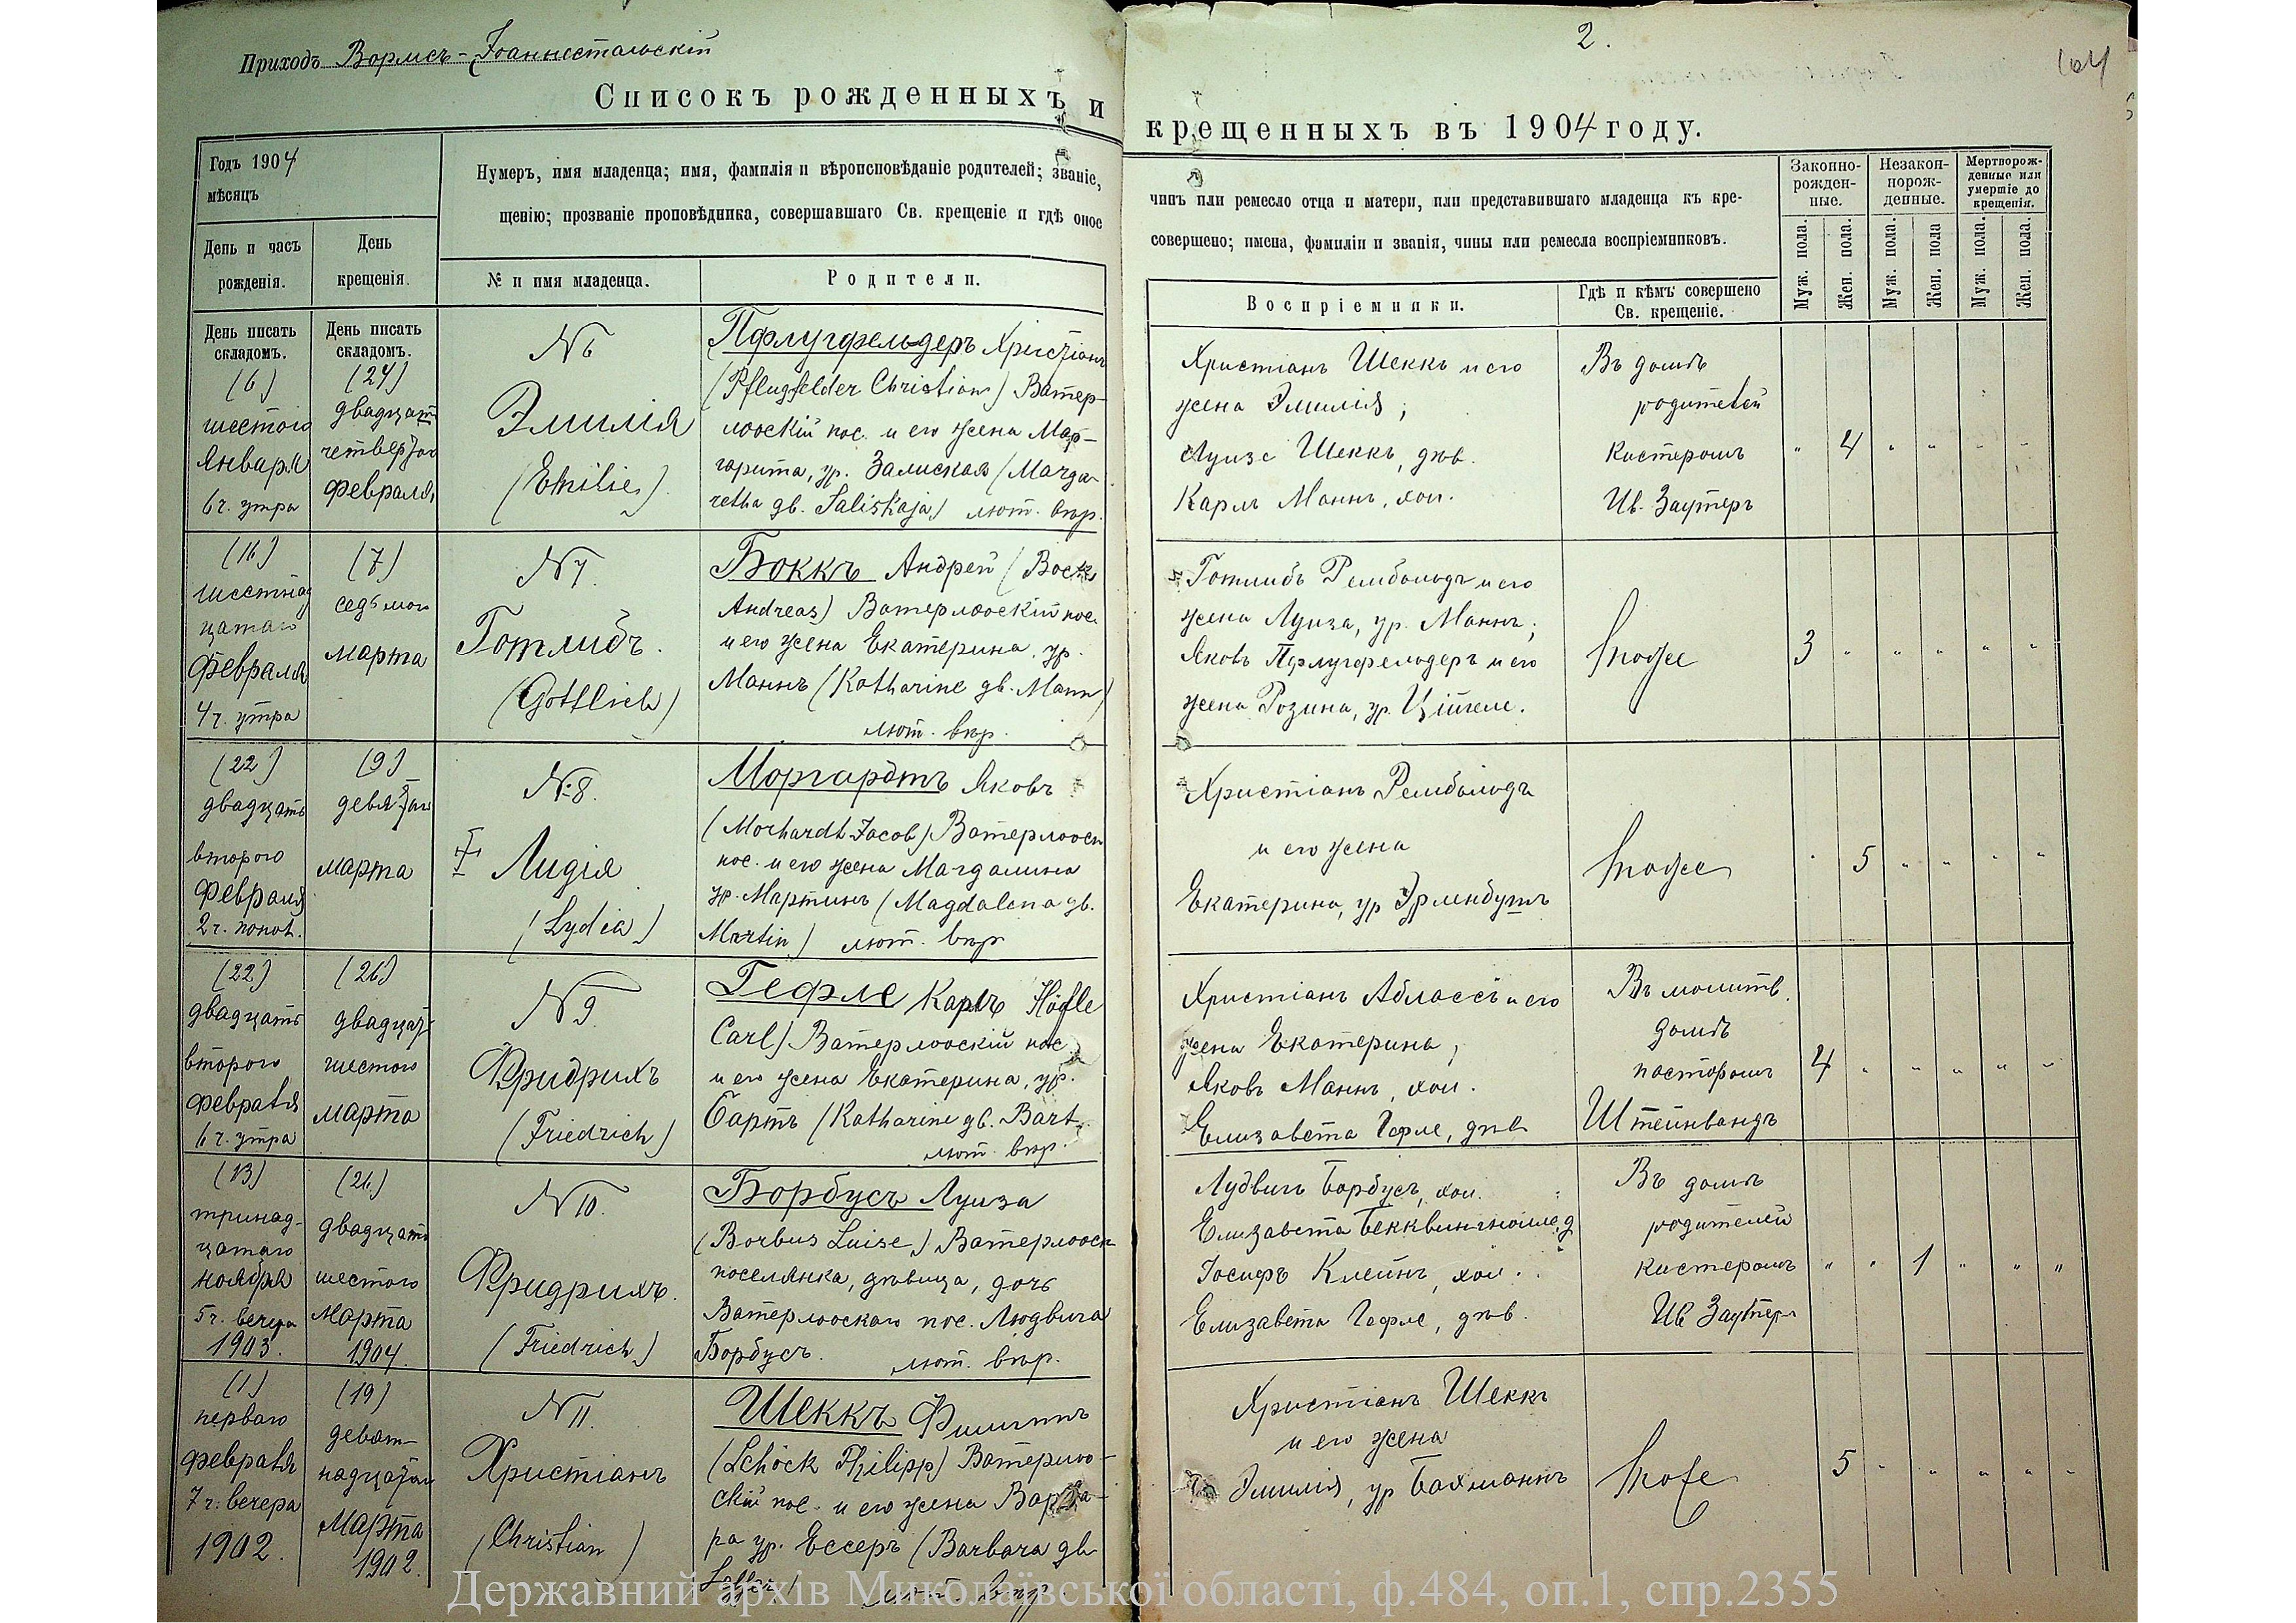 Приходъ Вормсъ-Іоаннестальскій
2.
104
Списокъ рожденныхъ и крещенныхъ въ 1904 году.
Годъ 1904
мѣсяцъ
День и часъ
рожденія.
День
крещенія.
Нумеръ, имя младенца; имя, фамилія и вѣроисповѣданіе родителей; званіе,
щенію; прозваніе проповѣдника, совершавшаго Св. крещеніе и гдѣ оное
чинъ или ремесло отца и матери, или представившаго младенца къ кре-
совершено; имена, фамиліи и званія, чины или ремесла воспріемниковъ.
№ и имя младенца.
Родители.
Воспріемники.
Гдѣ и кѣмъ совершено
Св. крещеніе.
Законно-
рожден-
ные.
Незакон-
норож-
денные.
Мертворож-
денные или
умершіе до
крещенія.
Муж. пола.
Жен. пола.
Муж. пола.
Жен. пола
Муж. пола.
Жен. пола.
День писать
складомъ.
День писать
складомъ.
(6)
шестого
Января
6 ч. утра
(24)
двадцат
четвертаго
Февраля
№ 6
Эмилія
(Emilie)
Пфлугфельдеръ Христіанъ
(Pflugfelder Christian) Ватер-
лооскій пос. и его жена Мар-
гарита, ур. Залиская (Marga-
retha gb. Saliskaja) лют. вѣр.
Христіанъ Шеккъ и его
жена Эмилія;
Луизе Шеккъ, дѣв.
Карлъ Маннъ, хол.
Въ домѣ
родителей
кистеромъ
Ив. Заутеръ
" 4 " " " "
(16)
шестнад
цатаго
Февраля
4 ч. утра
(7)
седьмого
марта
№ 7.
Готлибъ.
(Gottlieb)
Боккъ Андрей (Bock
Andreas) Ватерлооскій пос.
и его жена Екатерина, ур.
Маннъ (Katharine gb. Mann)
лют. вѣр.
Готлибъ Рембольдъ и его
жена Луиза, ур. Маннъ;
Яковъ Пфлугфельдеръ и его
жена Розина, ур.
тоже
3 " " " " "
(22)
двадцать
второго
Февраля
2 ч. попол.
(9)
девятаго
марта
№ 8.
Лидія
(Lydia)
Моргардтъ Яковъ
(Morhardt Jacob) Ватерлооск
пос. и его жена Магдалина
ур. Мартинъ (Magdalena gb.
Martin) лют. вѣр
Христіанъ Рембольдъ
и его жена
Екатерина, ур Эрленбушъ
тоже
" 5 " " " "
(22)
двадцать
второго
февраля
6 ч. утра
(26)
двадцать
шестого
марта
№ 9.
Фридрихъ
(Friedrich)
Гефле Карлъ Höfle
Carl) Ватерлооскій пос
и его жена Екатерина, ур.
Бартъ (Katharine gb. Bart
лют. вѣр.
Христіанъ Аблассъ и его
жена Екатерина,
Яковъ Маннъ, хол.
Елизавета Гефле, дѣв
Въ молитв.
домѣ
пасторомъ
Штейнвандъ
4 " " " " "
(13)
тринад-
цатаго
ноября
5 ч. вечера
1903.
(26)
двадцать
шестого
Марта
1904.
№ 10.
Фридрихъ.
(Friedrich)
Борбусъ Луиза
(Borbus Luise) Ватерлооск
поселянка, дѣвица, дочь
Ватерлооскаго пос. Людвига
Борбусъ. лют. вѣр.
Лудвигъ Борбусъ, хол.
Елизавета
Іосифъ Клейнъ, хол.
Елизавета Гефле, дѣв.
Въ домѣ
родителей
кистеромъ
Ив Заутеръ
" " 1 " " "
(1)
перваго
февраля
7 ч. вечера
1902.
(19)
девят-
надцатаго
Марта
1902.
№ 11.
Христіанъ
(Christian)
Шеккъ Филиппъ
(Schöck Philipp) Ватерлоо-
скій пос. и его жена Варва-
ра ур. Ессеръ (Barbara gb
лют. вѣр
Христіанъ Шеккъ
и его жена
Эмилія, ур Бахманнъ
тоже
5 " " " " "
Державний архів Миколаївської області, ф.484, оп.1, спр.2355